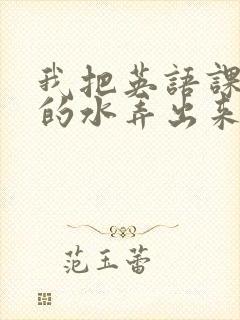 我把英語課
的水弄出来
范玉蕾